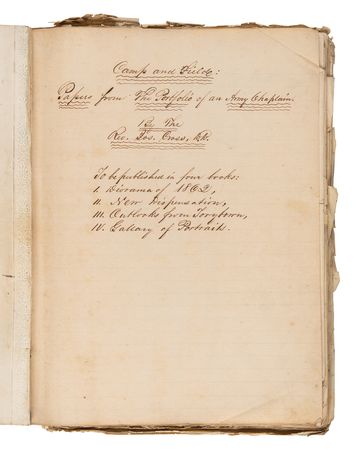 Camp and Field:
Papers from The Portfolio of an Army Chaplain.
By The
Rev. Jos. Cross, D.D.
To be published in four books:
I. Diorama of 1862,
II. New Dispensation,
III. Outlooks from Torytown,
IV. Gallary of Portraits.